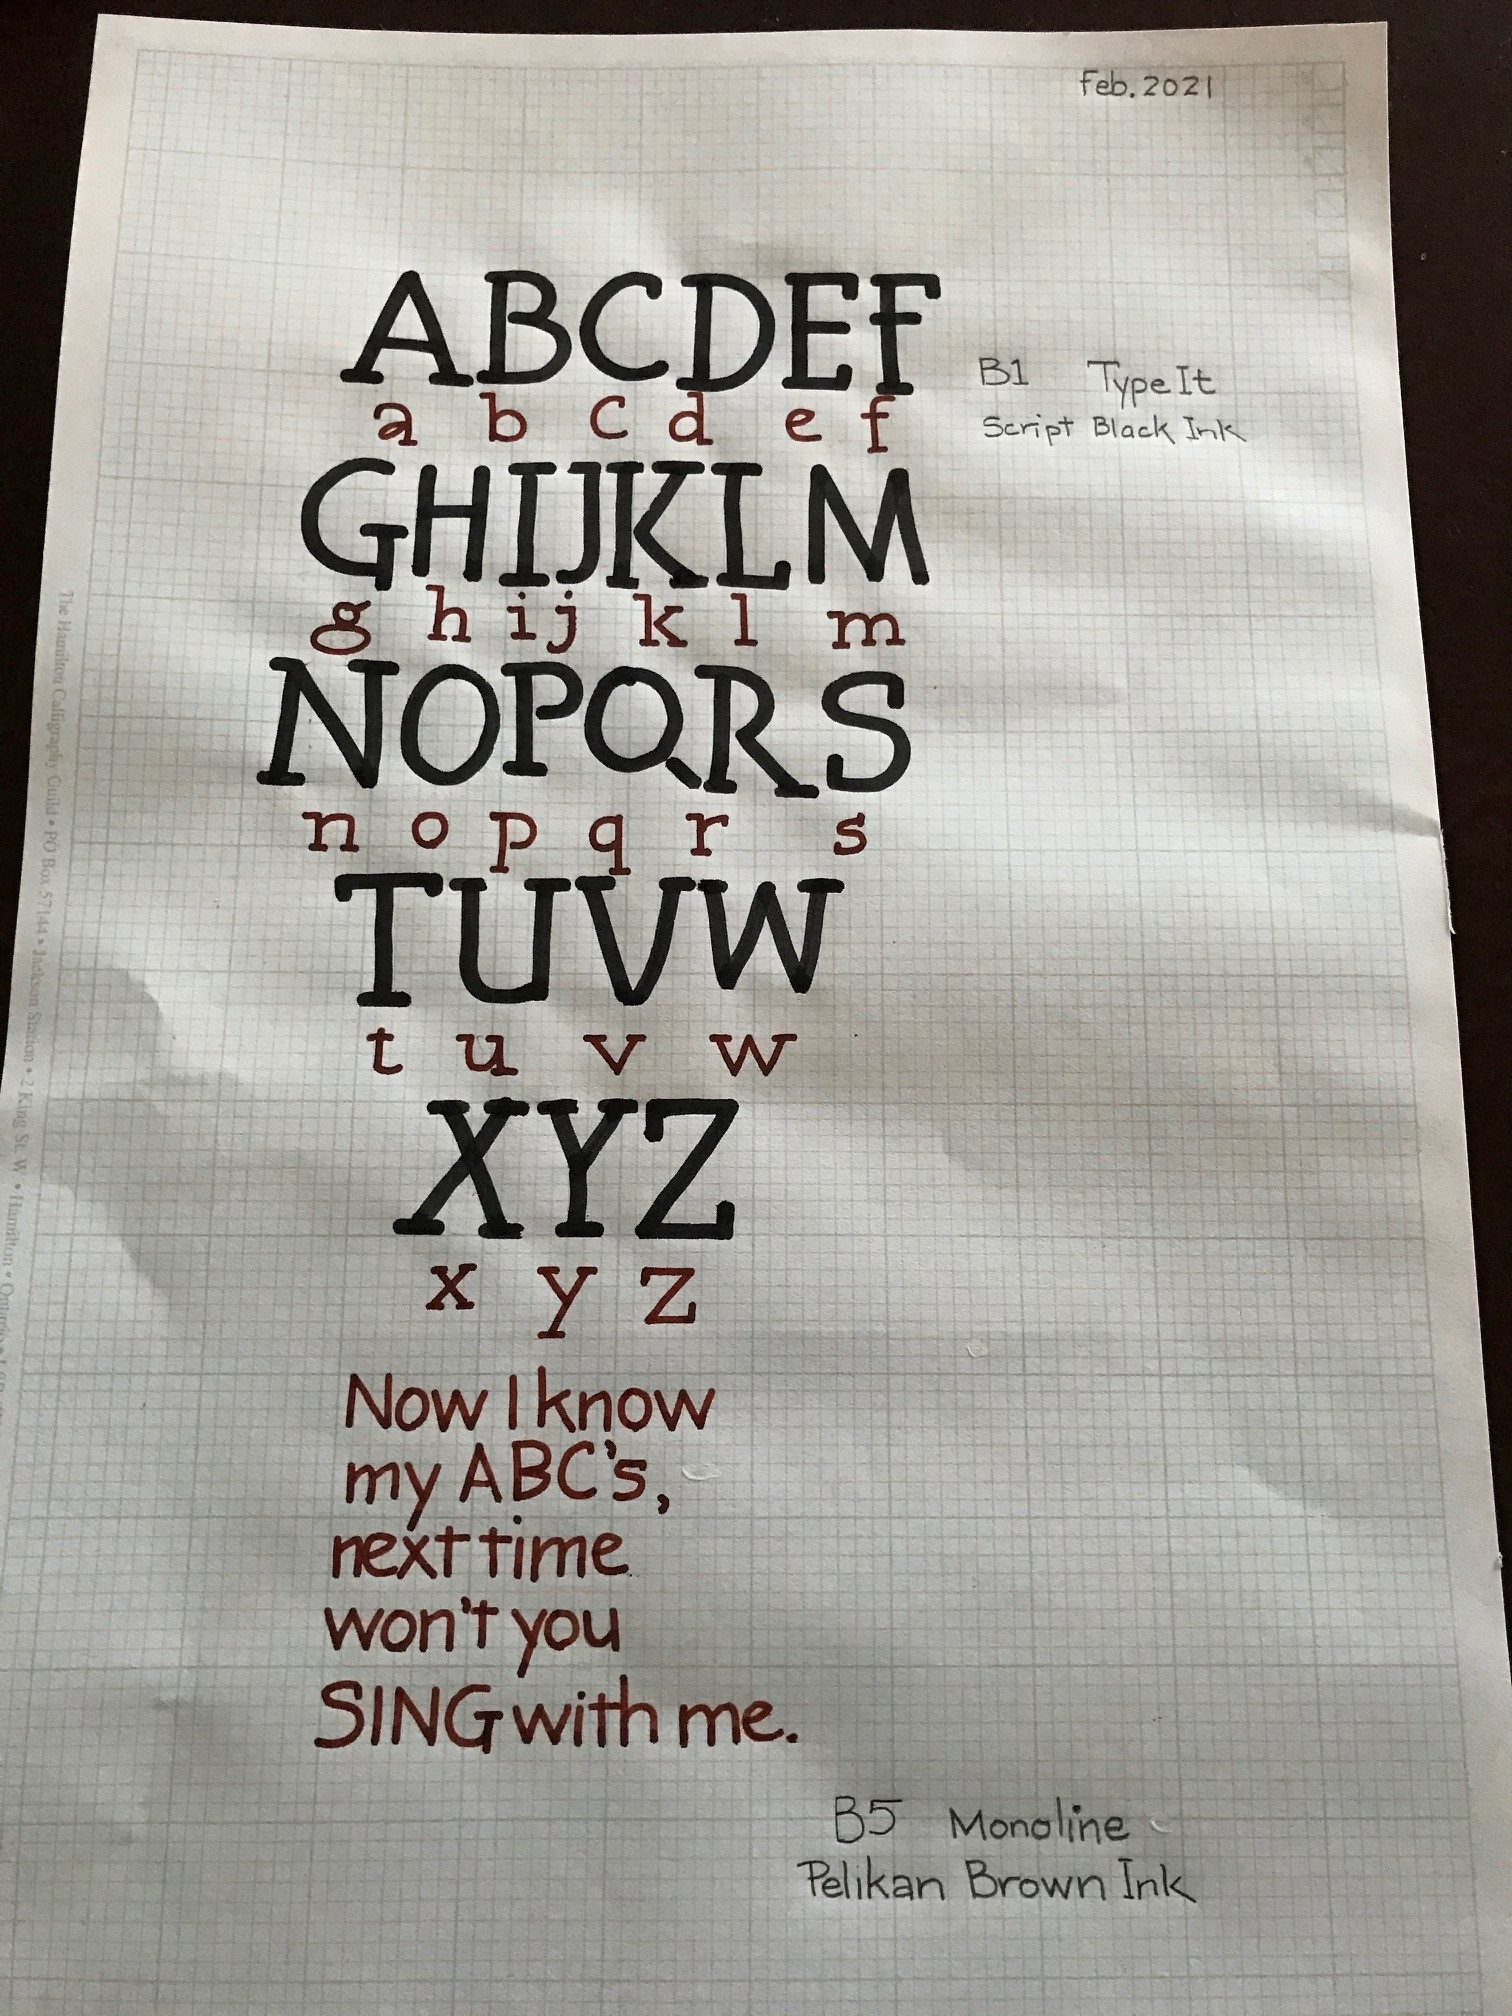 Feb. 2021
ABCDEF
a b c d e f
B1 Type It
Script Black Ink
GHIJKLM
g h i j k l m
NOPQRS
n o p q r s
TUVW
t u v w
XYZ
x y z
Now I know
my ABC's,
next time
won't you
SING with me.
B5 Monoline
Pelikan Brown Ink
The Hamilton Calligraphy Guild • PO Box 57144 • Jackson Station • 2 King St. W • Hamilton •